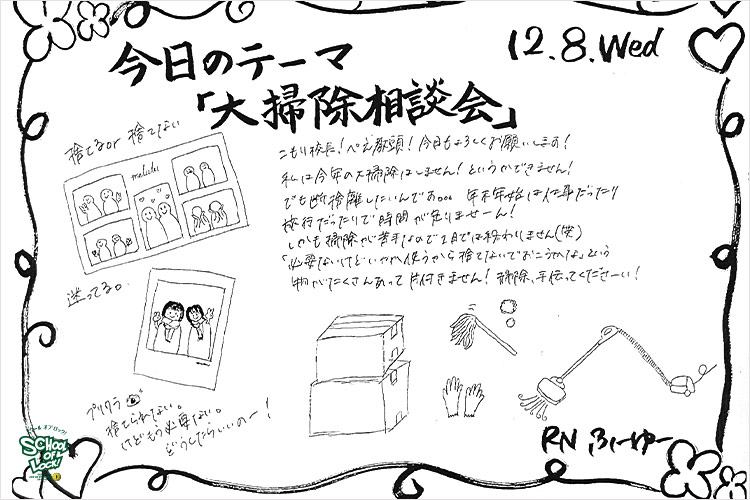 12.8.Wed
今日のテーマ
「大掃除相談会」
捨てるor 捨てない
こもり校長!ぺえ教頭!今日もよろしくお願いします!
私は今年の大掃除はしません!というかできません!
でも断捨離したいんです。。。年末年始は仕事だったり
旅行だったりで時間が足りませーん!
しかも掃除が苦手なので1日では終わりません(笑)
「必要ないけどいつか使うから捨てないでおこうかな」という
物がたくさんあって片付きません!掃除、手伝ってくださーい!
迷ってる。
プリクラ
捨てられない。
けどもう必要ない。
どうしたらいいのー!
スクール オブ ロック!
SCHOOL
OF
LOCK!
RN ふーゆー